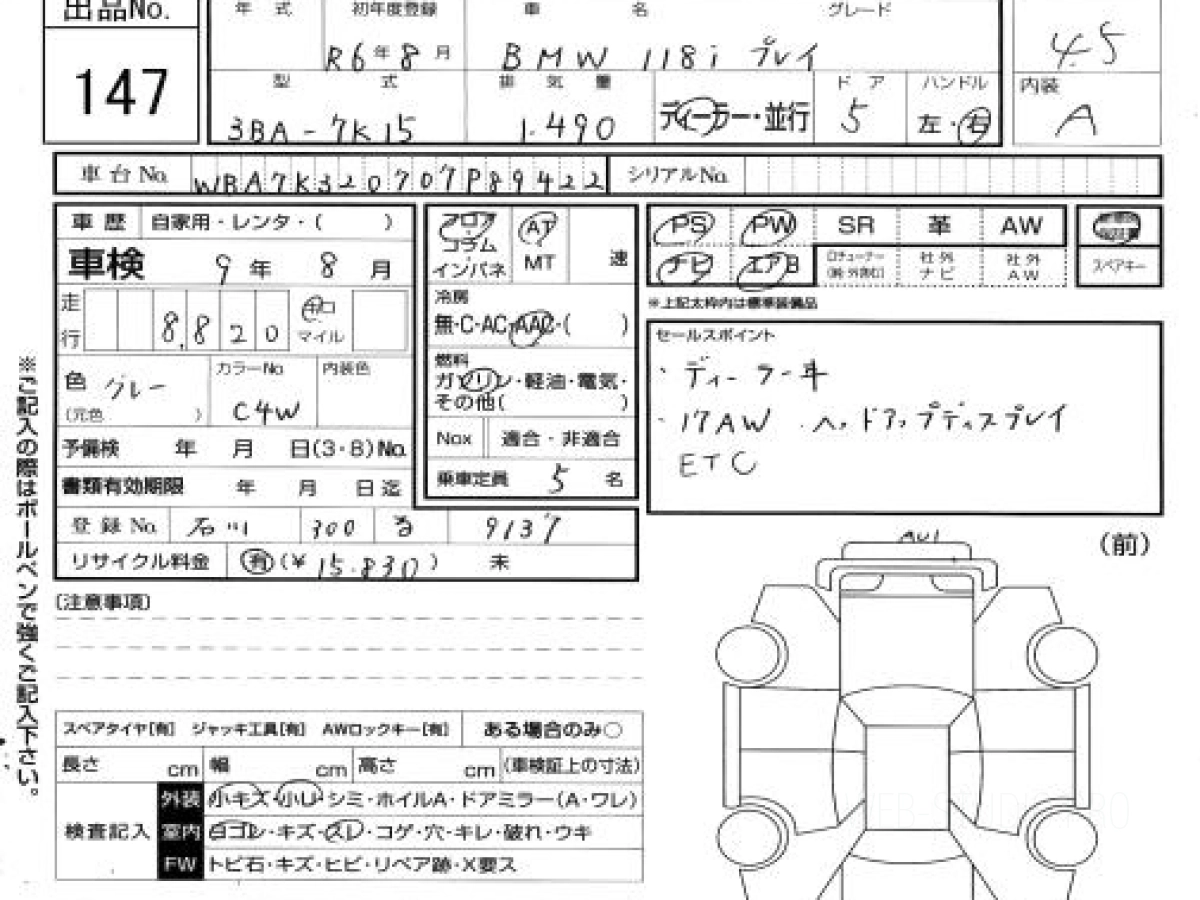 出品No. 年 式 初年度登録 車 名 グレード
147 R6年8月 BMW 118i プレイ 4.5
型 式 排 気 量 ディーラー・並行 ドア ハンドル 内装
3BA-7K15 1.490 5 左・右 A
車台No. WBA7K320707P89422 シリアルNo.
車歴 自家用・レンタ・( ) フロア コラム インパネ AT MT 速 PS PW SR 革 AW
車検 9年 8月 ナビ エアB 社外ナビ 社外AW スペアキー
※上記太枠内は標準装備品
走行 8,820 キロ マイル 冷房
無・C・AC・AAC・( )
セールスポイント
・ディーラー車
・17AW ・ヘッドアップディスプレイ
ETC
色 グレー (元色 ) カラーNo C4W 内装色
燃料
ガソリン・軽油・電気・
その他( )
Nox 適合・非適合
予備検 年 月 日(3・8)No.
書類有効期限 年 月 日迄 乗車定員 5 名
登録No. 石川 300 る 9137
リサイクル料金 有(¥15.830) 未
(前)
[注意事項]
スペアタイヤ[有] ジャッキ工具[有] AWロックキー[有] ある場合のみ○
長さ cm 幅 cm 高さ cm (車検証上の寸法)
検査記入 外装 小キズ・小U・シミ・ホイルA・ドアミラー(A・ワレ)
室内 白ゴレ・キズ・スレ・コゲ・穴・キレ・破れ・ウキ
FW トビ石・キズ・ヒビ・リペア跡・X要ス
※ご記入の際はボールペンで強くご記入下さい。